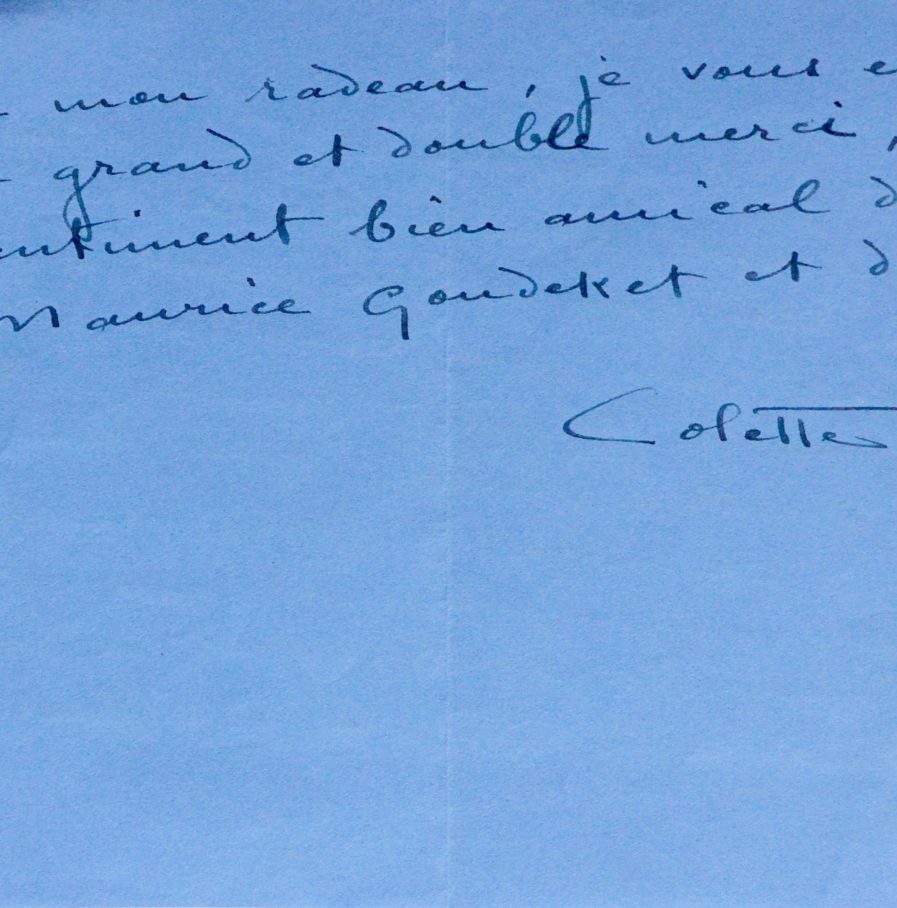 mon radeau, je vous e
grand et double merci,
entiment bien amical d
Maurice Goudeket et d
Colette